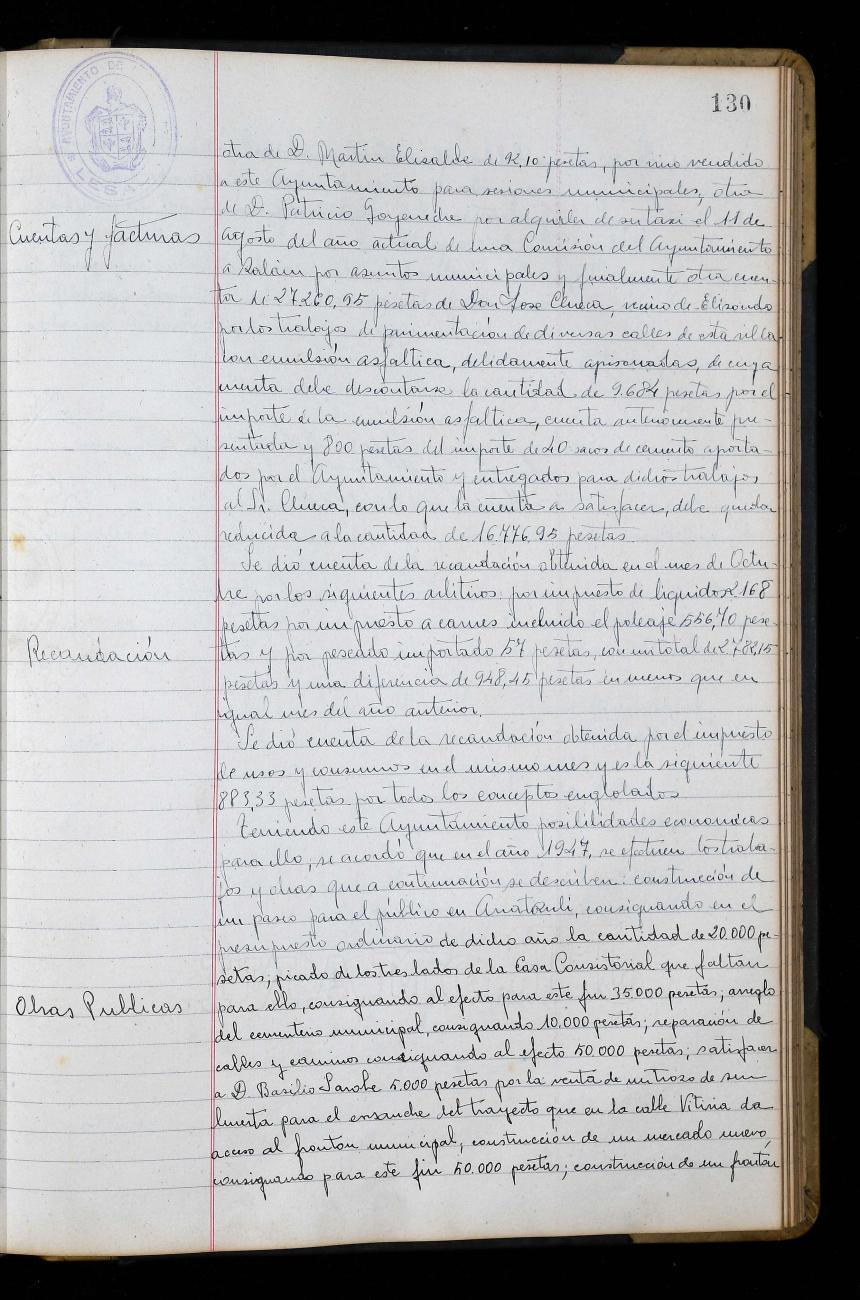 130
AYUNTAMIENTO DE
LESA
otra de D. Martín Elisalde de 92,10 pesetas, por vino vendido
a este Ayuntamiento para sesiones municipales, otra
de D. Patricio Goyeneche por alquiler de su taxi el 11 de
Cuentas y facturas
agosto del año actual de una Comisión del Ayuntamiento
a Zalain por asuntos municipales y finalmente otra cuen-
ta de 27.260,95 pesetas de Don Jose Chueca, vecino de Elizondo
por los trabajos de pavimentación de diversas calles de esta villa
con emulsión asfaltica, debidamente apisonadas, de cuya
cuenta debe descontarse la cantidad de 9.684 pesetas por el
importe de la emulsión asfaltica, cuenta anteriormente pre-
sentada y 800 pesetas del importe de 40 sacos de cemento aporta-
dos por el Ayuntamiento y entregados para dichos trabajos
al Sr. Chueca, con lo que la cuenta a satisfacer, debe quedar
reducida a la cantidad de 16.776,95 pesetas.
Se dió cuenta de la recaudación obtenida en el mes de Octu-
bre por los siguientes arbitrios: por impuesto de liquidos 2.168
pesetas por impuesto a carnes incluido el poleaje 556,70 pese-
Recaudación
tas y por pescado importado 57 pesetas, con un total de 2.782,15
pesetas y una diferencia de 948,45 pesetas en menos que en
igual mes del año anterior.
Se dió cuenta de la recaudación obtenida por el impuesto
de usos y consumos en el mismo mes y es la siguiente
883,33 pesetas por todos los conceptos englobados
Teniendo este Ayuntamiento posibilidades economicas
para ello, se acordó que en el año 1947, se efectuen los traba-
jos y obras que a continuación se describen: construcción de
un paseo para el público en consignando en el
presupuesto ordinario de dicho año la cantidad de 20.000 pe-
setas; picado de los tres lados de la Casa Consistorial que faltan
Obras Publicas
para ello, consignando al efecto para este fin 35.000 pesetas; arreglo
del cementerio municipal, consignando 10.000 pesetas; reparación de
calles y caminos consignando al efecto 50.000 pesetas; satisfacer
a D. Basilio Sarobe 5.000 pesetas por la venta de un trozo de su
huerta para el ensanche del trayecto que en la calle Vitiria da
acceso al fronton municipal, construcción de un mercado nuevo,
consignando para este fin 50.000 pesetas; construcción de un frontón